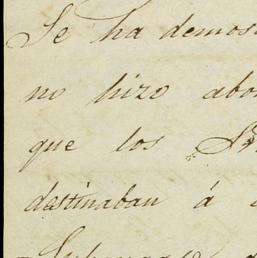 Se ha demos
no hizo abo
que los
destinaban á